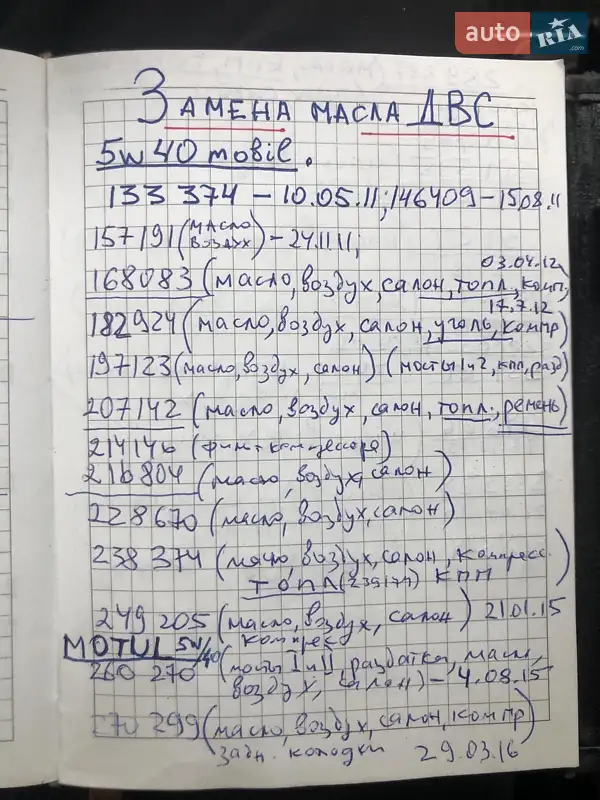 auto RIA.com
ЗАМЕНА МАСЛА ДВС
5w40 mobil.
133 374 – 10.05.11; 146409 – 15.08.11
157191 (МАСЛО ВОЗДУХ) – 24.11.11;
03.04.12
168083 (масло, воздух, салон, топл, комп.
17.7.12
182924 (масло, воздух, салон, уголь, компр)
197123 (масло, воздух, салон) (мосты 1 и 2, кпп, разд)
207142 (масло, воздух, салон, топл., ремень)
214146 (компрессора)
216804 (масло, воздух, салон)
228670 (масло, воздух, салон)
238 374 (масло, воздух, салон, компресс.)
ТОПЛ (239174) КПП
249 205 (масло, воздух, салон) 21.01.15
MOTUL 5W/40 компрес
260 270 (мосты I и II, раздатка, масло,
воздух, салон) – 4.08.15
270 299 (масло, воздух, салон, компр)
задн. колодки 29.03.16